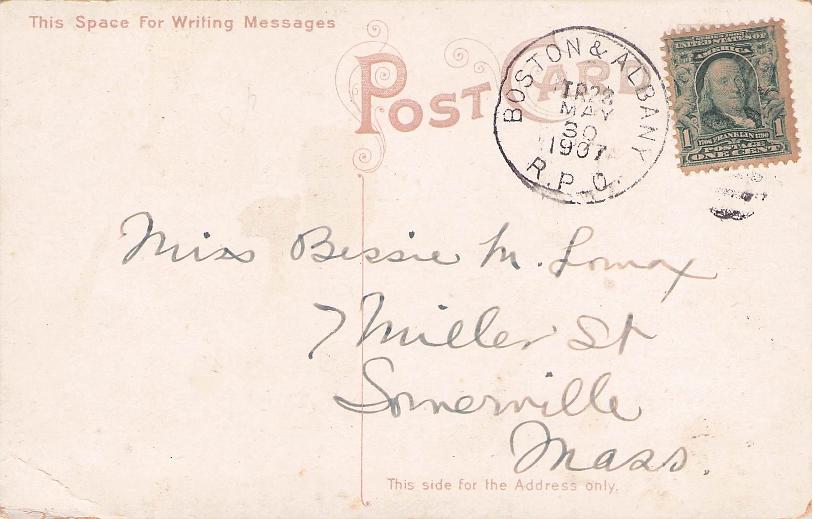 This Space For Writing Messages
POST CARD
BOSTON & ALBANY
TR 23
MAY
30
1907
R.P.O.
SERIES 1902
UNITED STATES OF
AMERICA
1 FRANKLIN 1
1706 1790
POSTAGE
ONE CENT
Miss Bessie M. Lomax
7 Miller St
Somerville
Mass.
This side for the Address only.